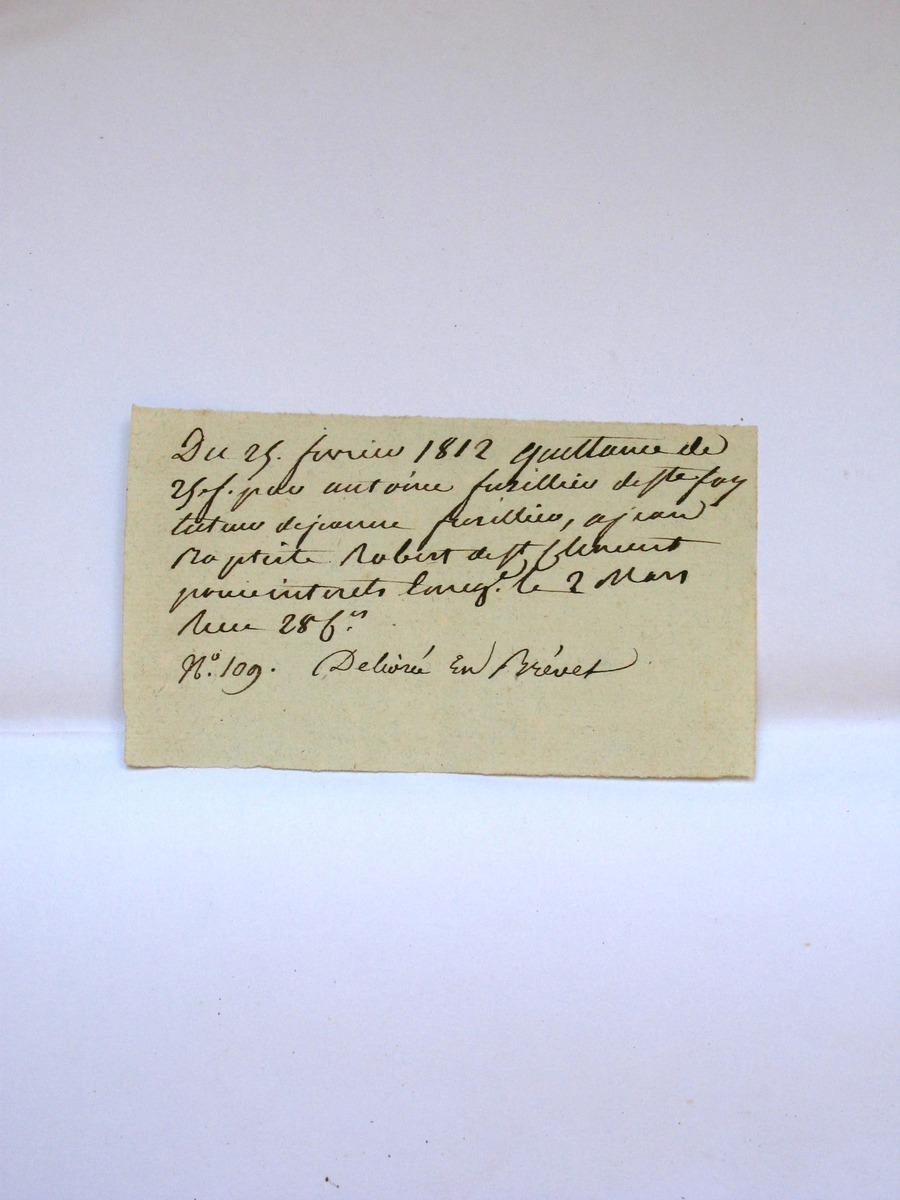 Du 25. fevrier 1812 quittance de
25 f. par antoine fusillier de ste foy
tuteur de jeanne fusillier, a jean
Baptiste Robert de st Clement
pour interets Enreg.é le 2 Mars
Recu 28 c.es
N.o 109. Delivré En Brévet